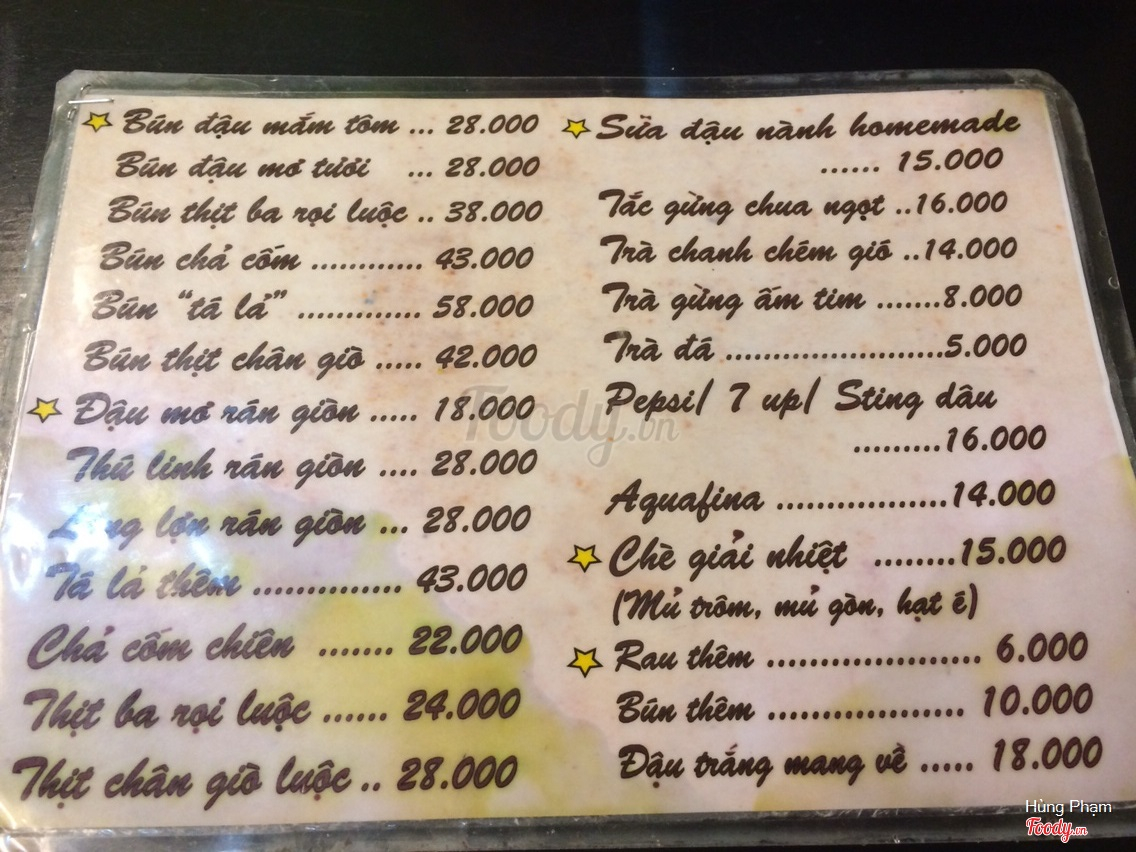 Bún đậu mắm tôm ... 28.000
Bún đậu mơ tươi ... 28.000
Bún thịt ba rọi luộc .. 38.000
Bún chả cốm ............ 43.000
Bún “tá lả” ............. 58.000
Bún thịt chân giò ...... 42.000
Đậu mơ rán giòn ..... 18.000
Thủ linh rán giòn .... 28.000
Lòng lợn rán giòn ... 28.000
Tá lả thêm .............. 43.000
Chả cốm chiên ....... 22.000
Thịt ba rọi luộc ...... 24.000
Thịt chân giò luộc .. 28.000
Sữa đậu nành homemade
...... 15.000
Tắc gừng chua ngọt ..16.000
Trà chanh chém gió ..14.000
Trà gừng ấm tim .......8.000
Trà đá ........................5.000
Pepsi/ 7 up/ Sting dâu
.........16.000
Aquafina ..................14.000
Chè giải nhiệt ........15.000
(Mủ trôm, mủ gòn, hạt é)
Rau thêm ...................... 6.000
Bún thêm .................... 10.000
Đậu trắng mang về ..... 18.000
Foody.vn
Hùng Phạm
Foody.vn